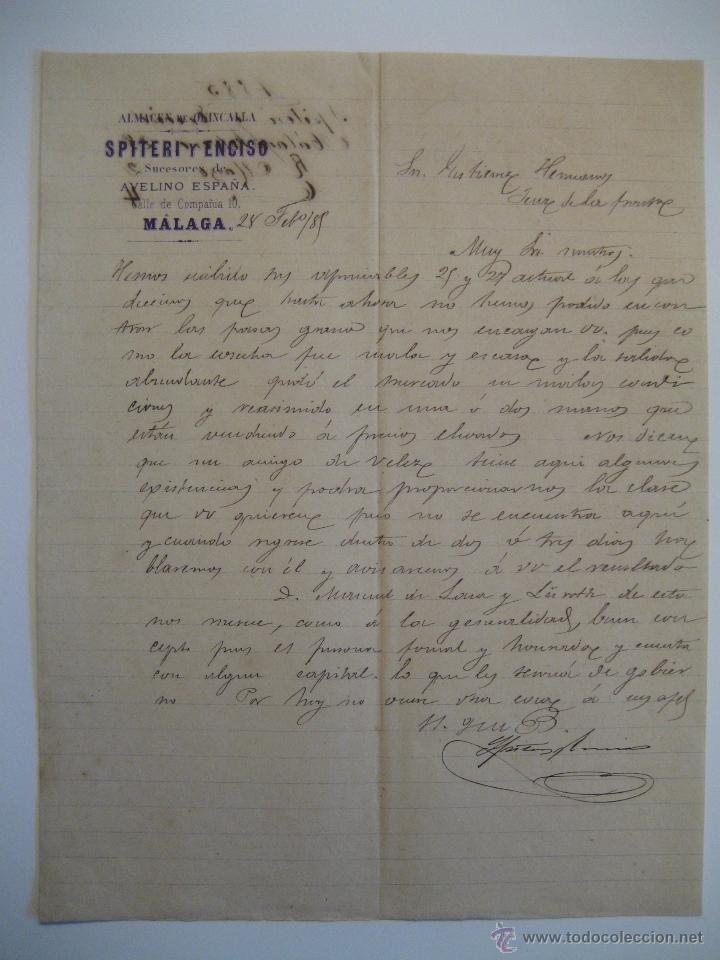 ALMACEN DE QUINCALLA
SPITERI Y ENCISO
Sucesores de
AVELINO ESPAÑA.
Calle de Compañia 10.
MÁLAGA. 28 Feb/85
Sres. Gutierrez Hermanos
Jerez de la frontra
Muy Sres. nuestros.
Hemos recibido sus apreciables 25 y 27 actual á las que
decimos que hasta ahora no hemos podido encon
trar las pasas grano que nos encargan vv. pues co
mo la cosecha fue mala y escasa y la salida
abundante quedó el mercado en malas condi
ciones y reasumido en una ó dos manos que
estan vendiendo á precios elevados Nos dicen
que un amigo de Velez tiene aqui algunas
existencias y podra proporcionarnos la clase
que vv quieren pero no se encuentra aquí
y cuando regrese dentro de dos ó tres dias ha
blaremos con él y avisaremos á vv el resultado
D. Manuel de Lara y de esta
nos merece, como á la generalidad, buen con
cepto pues es persona formal y honrada y cuenta
con algun capital. lo que les servirá de gobier
no Por hoy no otra cosa á
S. B.
Spiteri y Enciso
www.todocoleccion.net